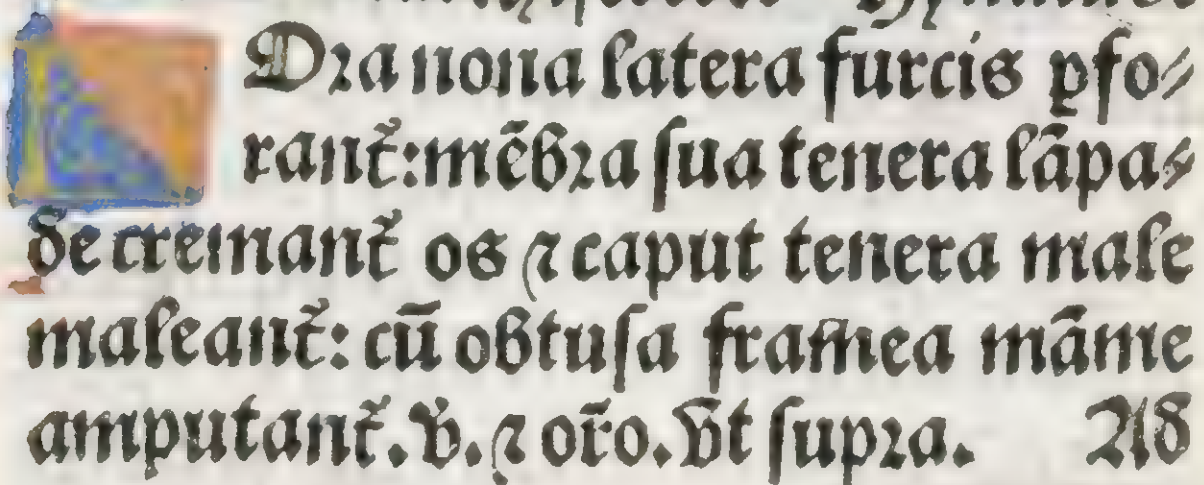 Ora nona latera furcis ꝑfo⸗
rant᷑: mēbꝛa ſua tenera lāpa⸗
de cremant᷑ os ⁊ caput tenera male
maleant᷑: cū obtuſa framea māme
amputant᷑. v̕. ⁊ oro̅. Vt ſupꝛa. Ad